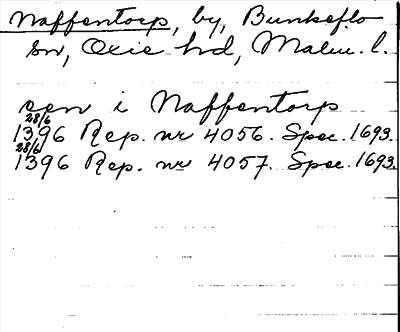 Naffentorp, by, Bunkeflo
sn, Oxie hd, Malm. l.
sen i Naffentorp
28/6
1396 Rep. nr 4056. Spec. 1693.
28/6
1396 Rep. nr 4057. Spec. 1693.